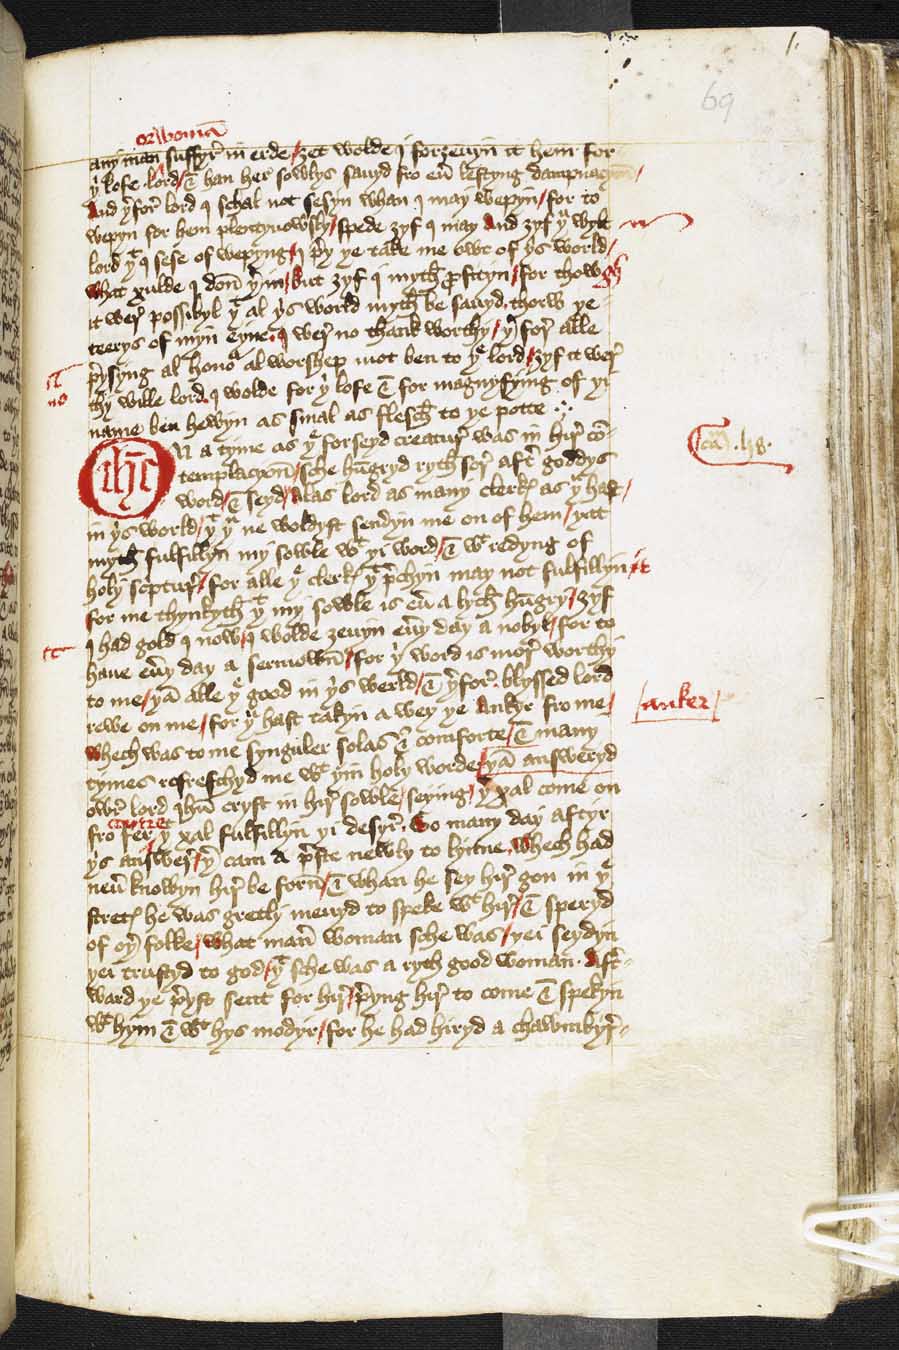 69
or womā
any man suffyr in erde / ȝet wolde I forȝeuyn it hem for
þi lofe lord / & han her sowlys sauyd fro euyr lestyng dampnacyon /
And þerfor lord I schal not sesyn whan I may wepyn / for to
wepyn for hem plentyuowsly / spede ȝyf I may And ȝyf þu wylt
lord þt I sese of wepyng / I prey þe take me owt of þis world /
what xulde I don þerin / but ȝyf I myth profityn / for thow gh
it wer possibyl þt al þis world myth be sauyd thorw þe
teerys of myn eyne / I wer no thank worthy / þerfor alle
preysyng al honor al worshep mot ben to þe lord / ȝyf it wer
it
no
thy wille lord I wolde for þi lofe & for magnyfying of þi
name ben hewyn as smal as flesch to þe potte
ON a tyme as þe forseyd creatur was in hir con-
cam . 58.
ihc
templacyon / sche hungryd rych sor aftyr goddys
word / & seyd / Alas lord as many clerkys as þu hast /
in þis world / þt þu ne woldyst sendyn me on of hem / þat
myth fulfillyn my sowle wt þi word / & wt redyng of
holy scriptur / for alle þe clerkys þt prechyn may not fulfillyn it
for me thynkyth þt my sowle is euyr a lych hungry / ȝyf
I had gold I now / I wolde ȝeuyn euery day a nobyl / for to
haue euery day a sermown / for þi word is mor worthy
to me / þan alle þe good in þis werld / & þerfor blyssed lord
rewe on me / for þu hast takyn a wey þe Ankyr fro me /
anker
whech was to me synguler solas & comforte / & many
tymes refreschyd me wt þin holy worde / þan answeryd
owr lord ihu cryst in hir sowle / seying / þer xal come on
fro fer / þt xal fulfillyn þi desyr . So many day aftyr
þis answer / þer cam A preste newly to lynne / whech had
neuyr knowyn hir be forn / & whan he sey hir gon in þe
stretys he was gretly meuyd to speke wt hir / & speryd
of oþer folke / what maner woman sche was / þei seydyn
þei trustyd to god / þt sche was a ryth good woman . Aftyr-
ward þe preyst sent for hir / preyng hir to come & spekyn
wt hym & wt hys modyr / for he had hiryd a chawmbyr-